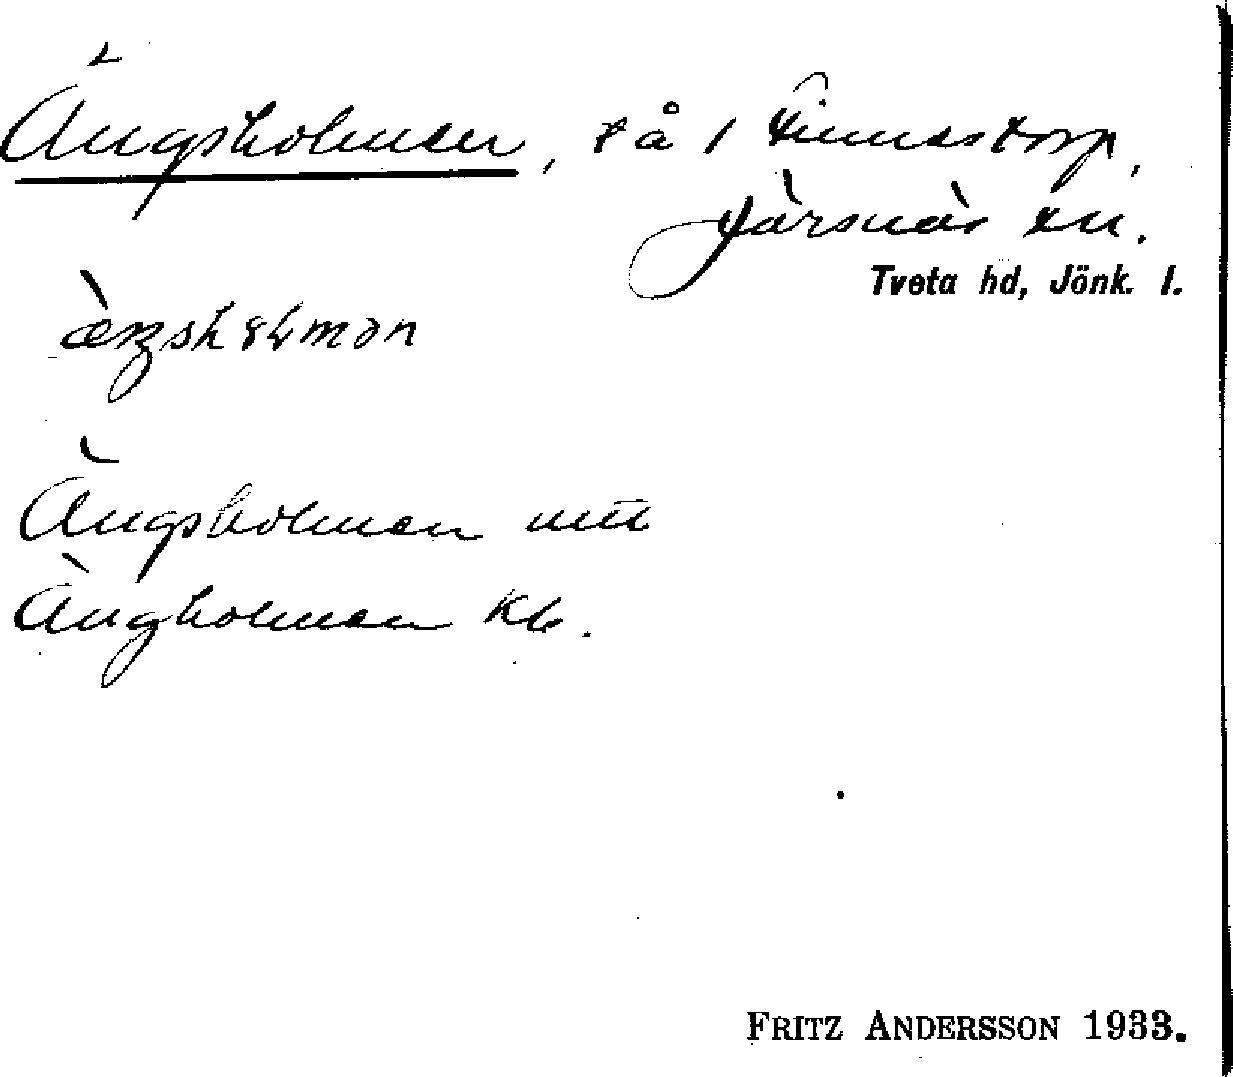 Ängsholmen, på 1 Finnestorp,
Järsnäs sn.
Tveta hd, Jönk. l.
Ängsholmen
Ängholmen Kb.
FRITZ ANDERSSON 1933.